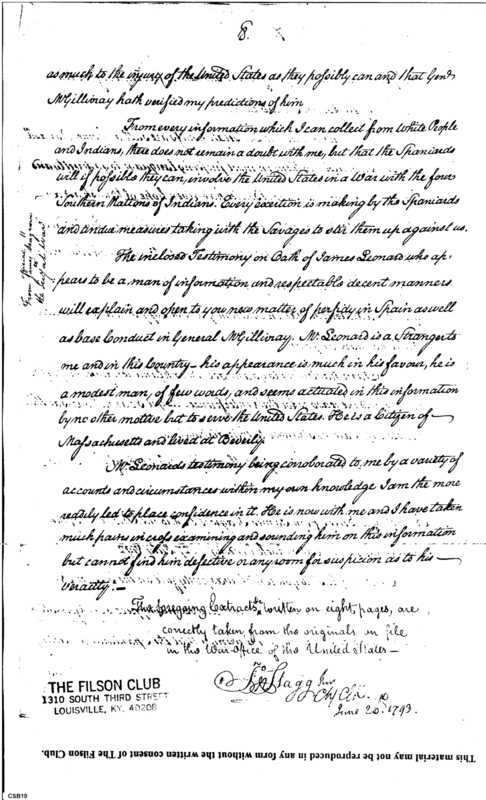 8.
as much to the injury of the United States as they possibly can and that Genl
McGillivray hath verified my predictions of him
From every information which I can collect from White People
and Indians, there does not remain a doubt with me, but that the Spaniards
will if possible they can, involve the United States in a War with the four
Southern Nations of Indians. Every exertion is making by the Spaniards
and undue measures taking with the Savages to stir them up against us.
The inclosed Testimony on Oath of James Leonard who ap-
pears to be a man of information and respectable decent manners
will explain and open to you new matter of perfidy in Spain as well
as base Conduct in General McGillivray. Mr. Leonard is a Stranger to
me and in this Country - his appearance is much in his favour, he is
a modest man, of few words, and seems actuated in this information
by no other motive but to serve the United States. He is a Citizen of
Massachusetts and lived at Beverly
Mr. Leonards testimony being corroborated to me by a variety of
accounts and circumstances within my own knowledge I am the more
readily led to place confidence in it. He is now with me and I have taken
much pains in cross examining and sounding him on this information
but cannot find him defective or any room for suspicion as to his
veracity.
The foregoing Extracts, written on eight pages, are
correctly taken from the originals on file
in the War Office of the United States-
Jno Stagg Jnr
Chf Clk.
June 20. 1793.
THE FILSON CLUB
1310 SOUTH THIRD STREET
LOUISVILLE, KY. 40208
This material may not be reproduced in any form without the written consent of The Filson Club.
CSB19